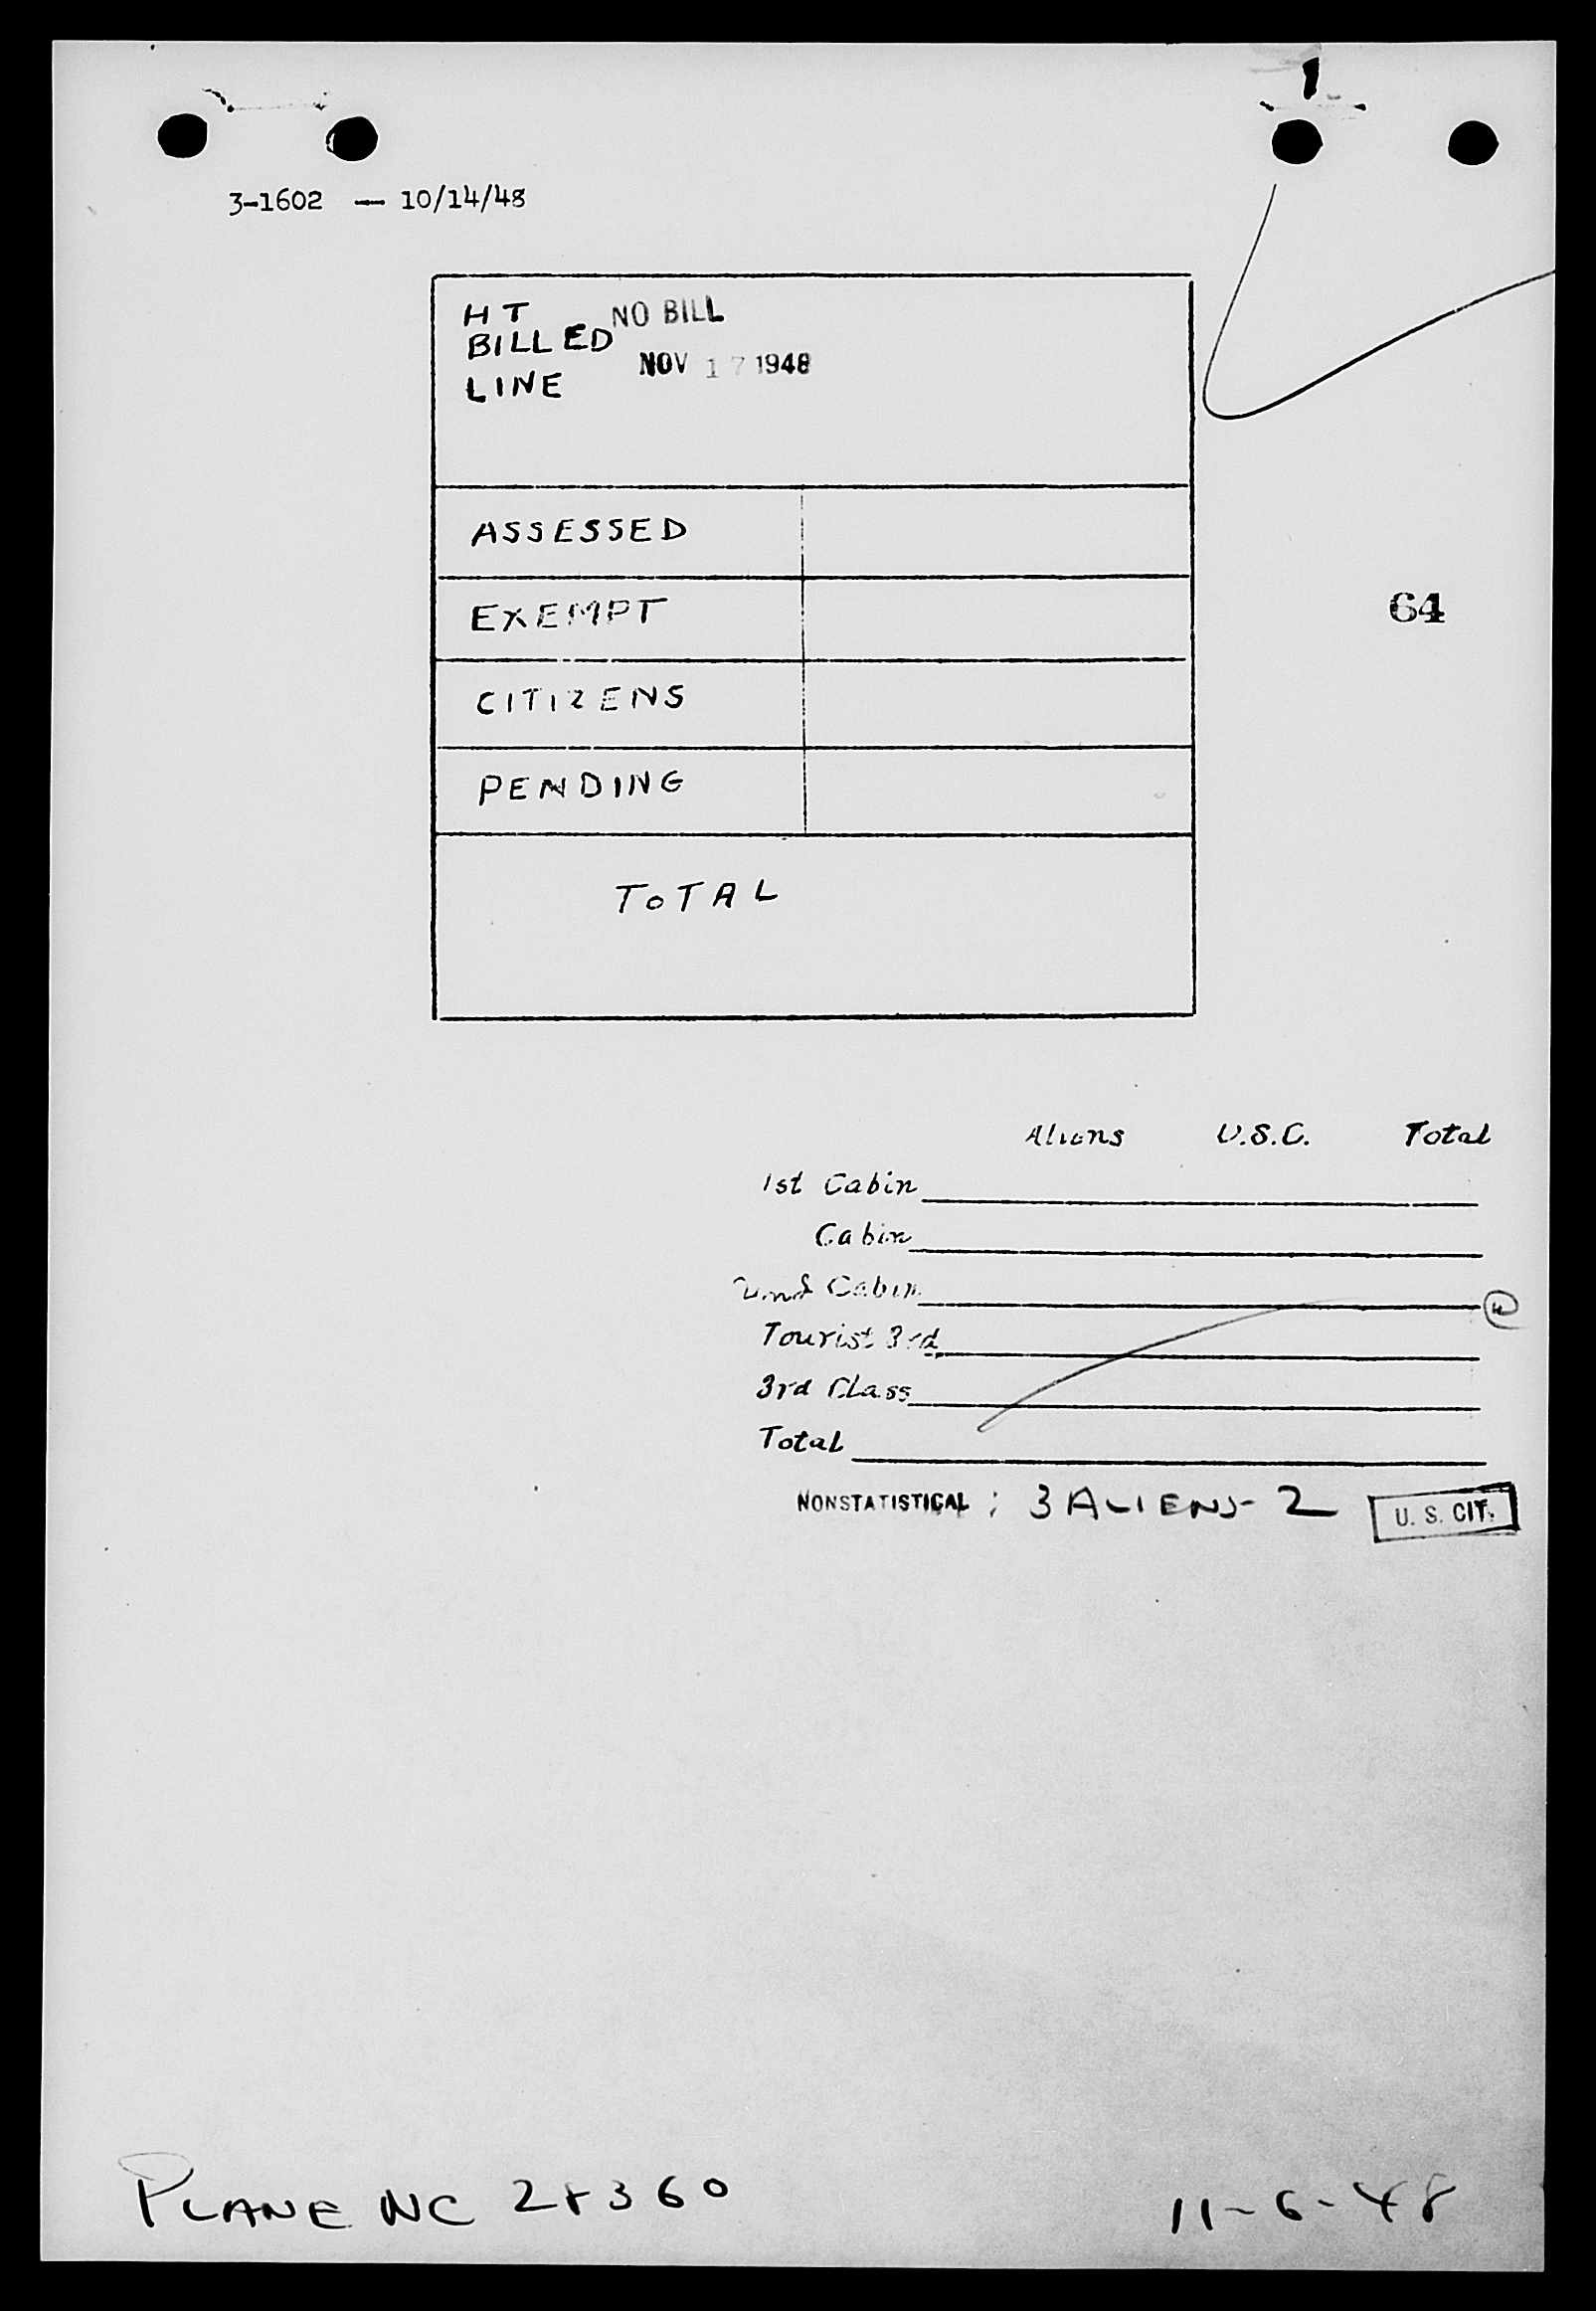 1
3-1602 — 10/14/48
HT
BILLED NO BILL
NOV 17 1948
LINE
ASSESSED
EXEMPT
64
CITIZENS
PENDING
TOTAL
Aliens U.S.C. Total
1st Cabin
Cabin
2nd Cabin
Tourist 3rd
3rd Class
Total
NONSTATISTICAL : 3 ALIENS - 2 U. S. CIT.
PLANE NC 28360 11-6-48